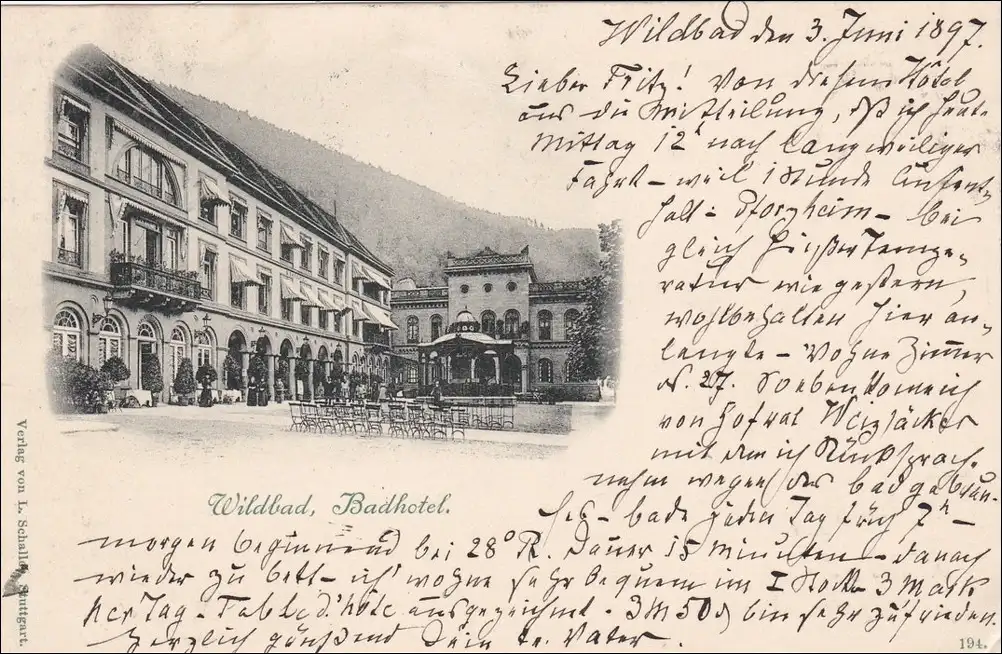 Wildbad den 3. Juni 1897.
Lieber Fritz! Von diesem Hôtel
aus die Mitteilung, daß ich heute
Mittag 12 h nach langweiliger
Fahrt – weil 1 Stunde Aufent-
halt: Pforzheim – bei
gleich heißer Tempe-
ratur wie gestern,
wohlbehalten hier an-
langte – Wohne Zimmer
N. 27. Soeben komme ich
von Hofrat Weizsäcker
mit dem ich Rücksprach.
nahm wegen des Badgebrau-
ches – bade jeden Tag früh 7 h –
morgen beginnend bei 28° R. Dauer 15 Minuten – danach
wieder zu Bett – ich wohne sehr bequem im I Stock 3 Mark
per Tag. Table d'hôte ausgezeichnet. 3 M 50 bin sehr zufrieden.
Herzlich grüßend Dein tr. Vater.
Wildbad, Badhotel.
Verlag von L. Schaller, Stuttgart.
194.